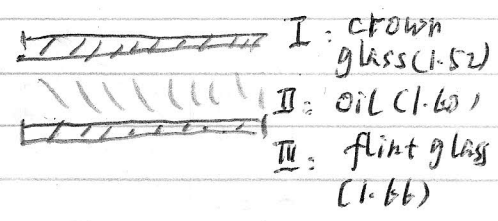 I : crown
glass (1.52)
II : oil (1.60)
III : flint glass
(1.66)